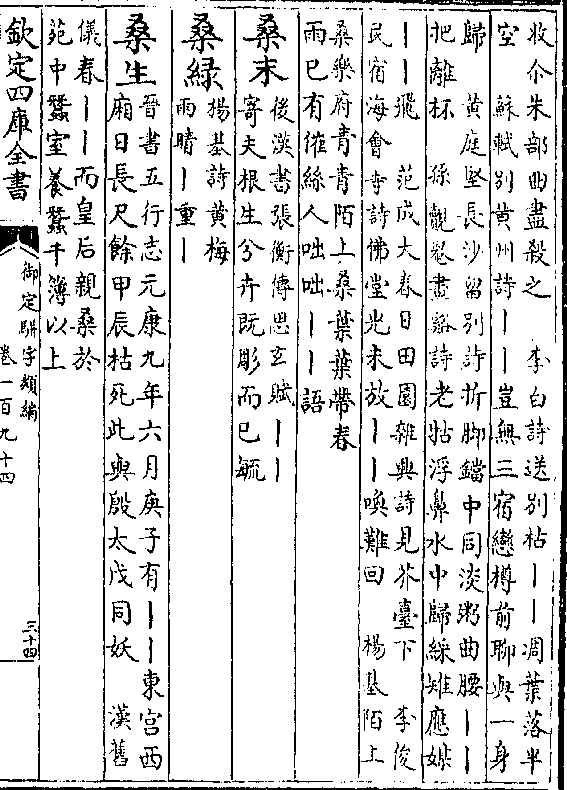 收介朱部曲盡殺之　李白詩送別枯丨丨凋葉落半
空　蘇軾別黄州詩丨丨豈無三宿戀樽前聊與一身
歸　黄庭堅長沙留別詩折脚鐺中同淡粥曲腰丨丨
把離杯　孫覿卷畫谿詩老牯浮鼻水中歸綵雉應媒
丨丨飛　范成大春日田園雜興詩見芥臺下　李俊
民宿海會寺詩佛堂光未放丨丨喚難回　楊基陌上
桑樂府青青陌上桑葉葉帶春
雨已有催絲人咄咄丨丨語
桑末
後漢書張衡傳思玄賦丨丨
寄夫根生兮卉既彫而已毓
桑緑
楊基詩黄梅
雨晴丨重丨
桑生
晉書五行志元康九年六月庚子有丨丨東宫西
廂日長尺餘甲辰枯死此與殷太戊同妖　漢舊
儀春丨丨而皇后親桑於
苑中蠶室養蠶千簿以上
欽定四庫全書
御定駢字類編
卷一百九十四
三十四